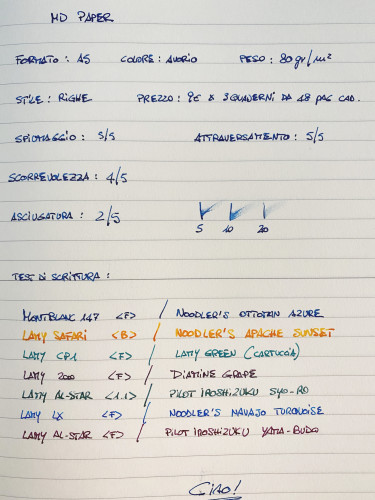 MD PAPER
FORMATO : A5 COLORE : AVORIO PESO : 80 gr/m²
STILE : RIGHE PREZZO : 9€ x 3 QUADERNI DA 48 PAG CAD.
SPIUMAGGIO : 5/5 ATTRAVERSAMENTO : 5/5
SCORREVOLEZZA : 4/5
ASCIUGATURA : 2/5
5 10 20
TEST DI SCRITTURA :
MONTBLANC 147 <F> / NOODLER'S OTTOMAN AZURE
LAMY SAFARI <B> / NOODLER'S APACHE SUNSET
LAMY CP1 <F> / LAMY GREEN (CARTUCCIA)
LAMY 2000 <F> / DIAMINE GRAPE
LAMY AL-STAR <1.1> / PILOT IROSHIZUKU SYO-RO
LAMY LX <F> / NOODLER'S NAVAJO TURQUOISE
LAMY AL-STAR <F> / PILOT IROSHIZUKU YAMA-BUDO
CIAO!